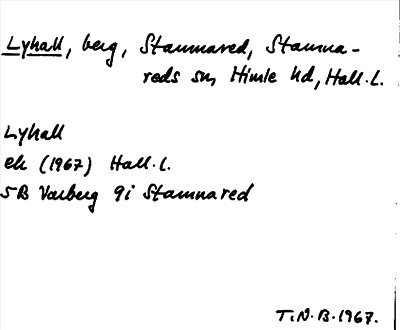 Lyhall, berg, Stamnared, Stamna-
reds sn, Himle hd, Hall.l.
Lyhall
ek (1967) Hall.l.
5B Varberg 9i Stamnared
T.N.B.1967.